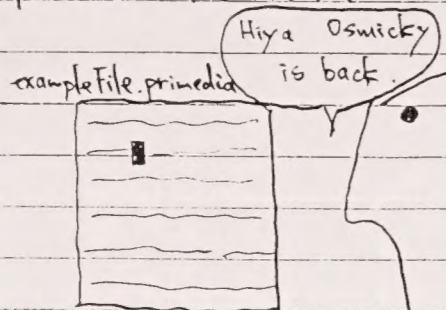 Hiya Osmicky
is back.
exampleFile.primedia